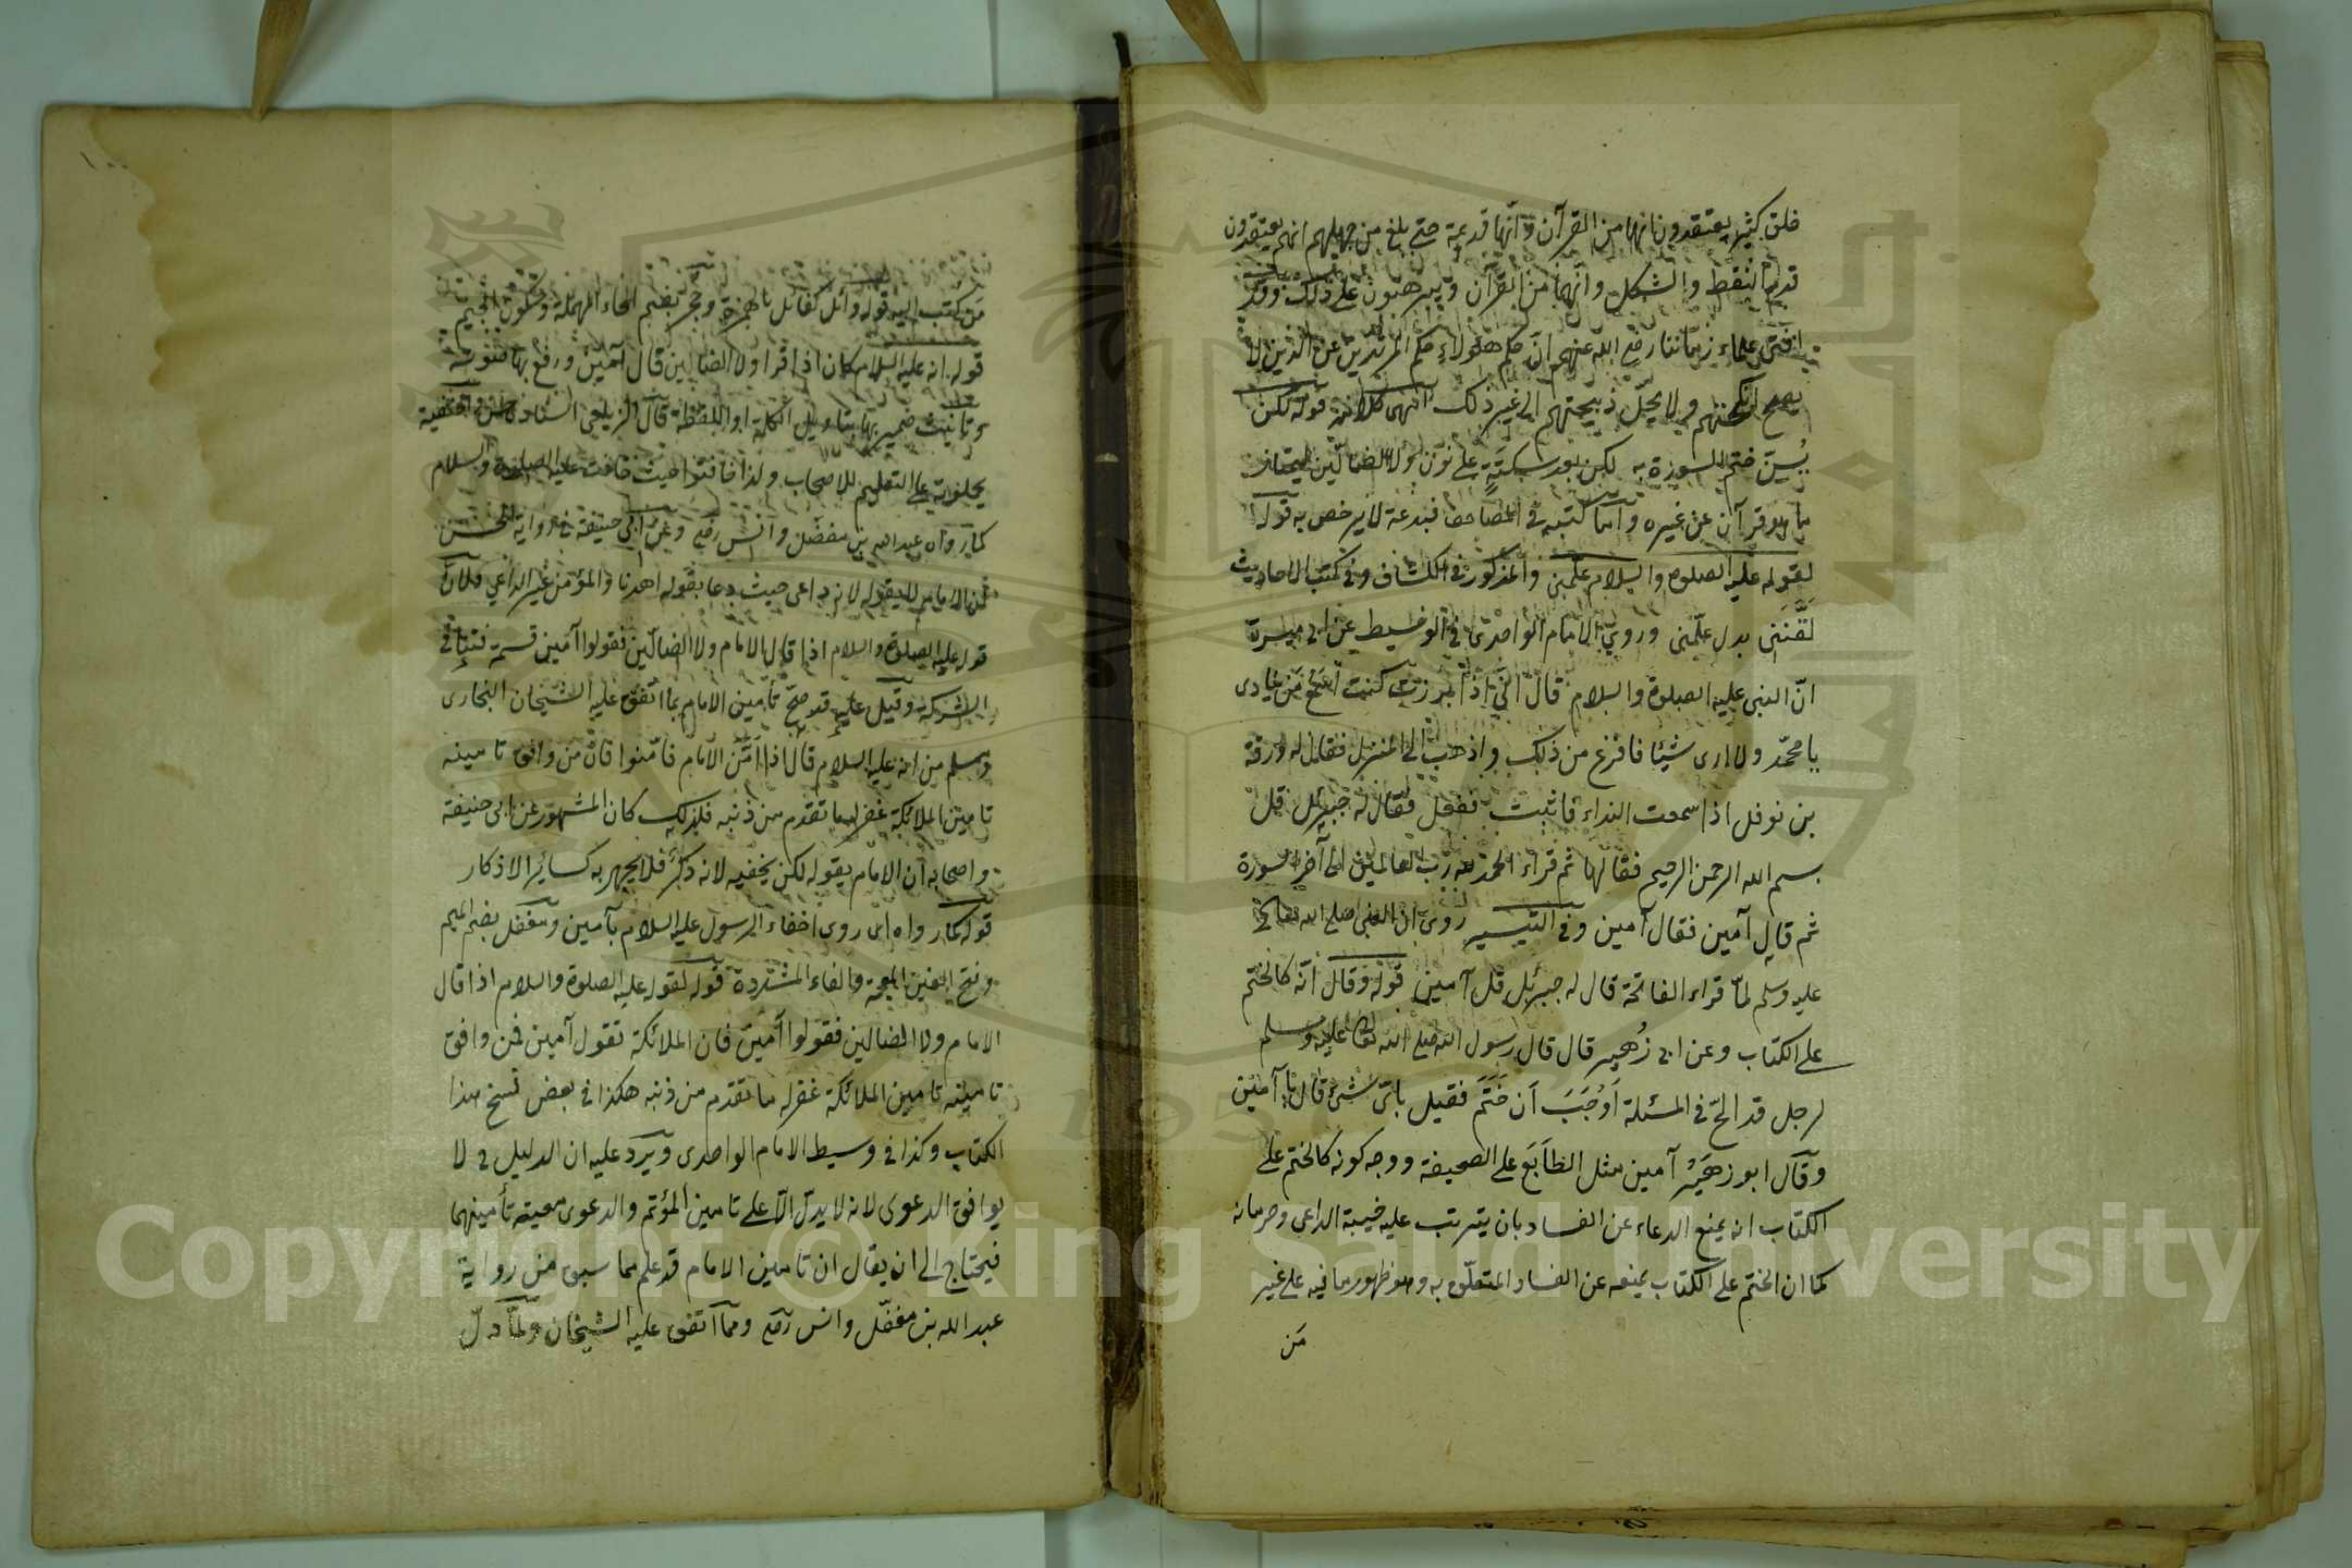 خلق كثير يعتقدون انها من القرآن وانّها قديمة حتى بلغ من جهلهم انهم يعتقدون
قدم النقط والشكل وانّها من القرآن ويبرهنون على ذلك وقد
افتى علماء زماننا رضع الله عنهم انّ حكم هؤلاء حكم المرتدين عن الذين لا
يصح انكحتهم ولا يحلّ ذبيحتهم الى غير ذلك انتهى كلامه قوله لكن
يُسنّ ختم السورة به لكن بعد سكتةٍ على نون ولا الضالّين ليمتاز
ما هو قرآن عن غيره وامّا كتبه في المصاحف فبدعة لا يرخص به قوله
لقوله عليه الصلوة والسلام علّمني والمذكور في الكشاف وفي كتب الاحاديث
لَقَّنَنى بدل علّمنى وروى الامام الواحدى في الوسيط عن ابى ميسرة
انّ النبى عليه الصلوة والسلام قال انّى اذا برزت كنت اسمع مَن ينادى
يا محمّد ولا ارى شيئا فافزع من ذلك واذهب الى المنزل فقال له ورقة
بن نوفل اذا سمعت النداء فاثبت ففعل فقال له جبرئل قل
بسم الله الرحمن الرحيم فقالها ثم قراء الحمد لله رب العالمين الى آخر السورة
ثم قال آمين فقال آمين وفى التيسير روى ان النبى صلى الله تعالى
عليه وسلم لمّا قراء الفاتحة قال له جبرئل قل آمين قوله وقال انّه كالختم
على الكتاب وعن ابى زُهير قال قال رسول الله صلى الله تعالى عليه وسلم
لرجل قد الحّ في المسئلة اَوْجَبَ اَن خَتَمَ فقيل باىّ شئ قال بآمين
وقال ابو زهَيْر آمين مثل الطابَع على الصحيفة ووجه كونه كالختم على
الكتاب انه يمنع الدعاء عن الفساد بان يترتب عليه خيبة الداعى وحرمانه
كما ان الختم على الكتاب يمنعه عن الفساد المتعلّق به وهو ظهور ما فيه على غير
مَن
مَن كتب اليه قوله وائل كقائل بالهمزة وحجر بضم الحاء المهملة وسكون الجيم
قوله انه عليه السلام كان اذا قرا ولا الضالين قال آمين ورفع بها صوته
وتانيث ضمير بها بتاويل الكلمة او اللفظة قال الزيلعى
على التعليم للاصحاب ولذا خافتوا حيث خافت عليه الصلوة والسلام
كما رواه عبدالله بن مغفل وانس رضع وعن ابى حنيفة فى رواية الحسن
الامام لا يقوله لانه داعى حيث دعا بقوله اهدنا والمؤمن غير الداعى فلان
قوله عليه الصلوة والسلام اذا قال الامام ولا الضالّين فقولوا آمين قسمة فتنافى
الشركة وقيل عليه قد صحّ تأمين الامام بما اتفق عليه الشيخان البخارى
ومسلم من انه عليه السلام قال اذا اَمَّن الامام فامّنوا فانّ من وافق تامينه
تامين الملائكة غفر له ما تقدم من ذنبه فلذلك كان المشهور عن ابى حنيفة
واصحابه ان الامام يقوله لكن يخفيه لانه ذكر فلا يجهر به كسائر الاذكار
قوله كما رواه اى روى اخفاء الرسول عليه السلام بآمين ومغفل بضم الميم
وفتح الغين المعجمة والفاء المشددة قوله لقوله عليه الصلوة والسلام اذا قال
الامام ولا الضالين فقولوا آمين فان الملائكة تقول آمين فمن وافق
تامينه تامين الملائكة غفر له ما تقدم من ذنبه هكذا فى بعض نسخ هذا
الكتاب وكذا فى وسيط الامام الواحدى ويَرد عليه ان الدليل ح لا
يوافق الدعوى لانه لا يدلّ الّا على تامين المؤتم والدعوى معيّة تأمينهما
فيحتاج الى ان يقال ان تامين الامام قد علم مما سبق من رواية
عبد الله بن مغفّل وانس رضع وممّا اتفق عليه الشيخان ولمّا دلّ
Copyright © King Saud University